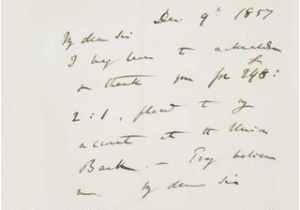 Dec. 9th 1857
My dear Sir
I beg leave to acknowledge
& thank you for £248:
2:1, placed to my
account at the Union
Bank. — Pray believe
me. My dear Sir